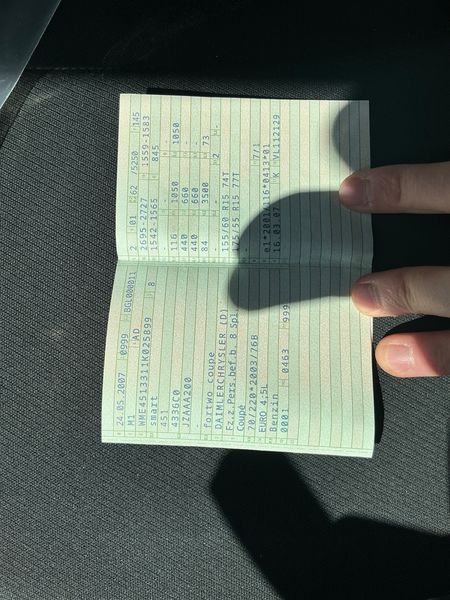 24.05.2007 0999 BGL000011
M1 AD
WME4513311K025899 8
smart
451
4336C0
JZAAA200
-
fortwo coupe
DAIMLERCHRYSLER (D)
Fz.z.Pers.bef.b. 8 Spl.
Coupé
70/220*2003/76B
EURO 4;5L
Benzin
0001 0463 999
2 01 62 /5250 145
2695-2727 1559-1583
1542-1565 845
- -
116 1050 1050
440 660 -
440 660 -
84 3500 73
- 2 -
155/60 R15 74T
175/55 R15 77T
-
e1*2001/116*0413*01
16.03.07 K VL112129